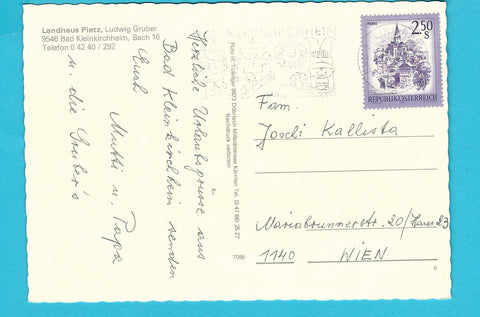 Landhaus Pietz, Ludwig Gruber
9546 Bad Kleinkirchheim, Bach 16
Telefon 0 42 40 / 292
Herzliche Urlaubsgrüsse aus
Bad Kleinkirchheim senden
Euch
Mutti u. Papa
u. die Gruber's
9872 Döbriach Millstättersee Kärnten Tel.
Nachdruck verboten
7086
2.50
S
REPUBLIK ÖSTERREICH
Fam.
Joschi Kallista
Mariabrunnerstr. 20/Haus 23
1140 WIEN